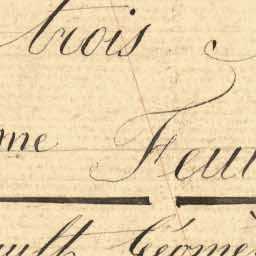 trois
me Feui
ault Géomè